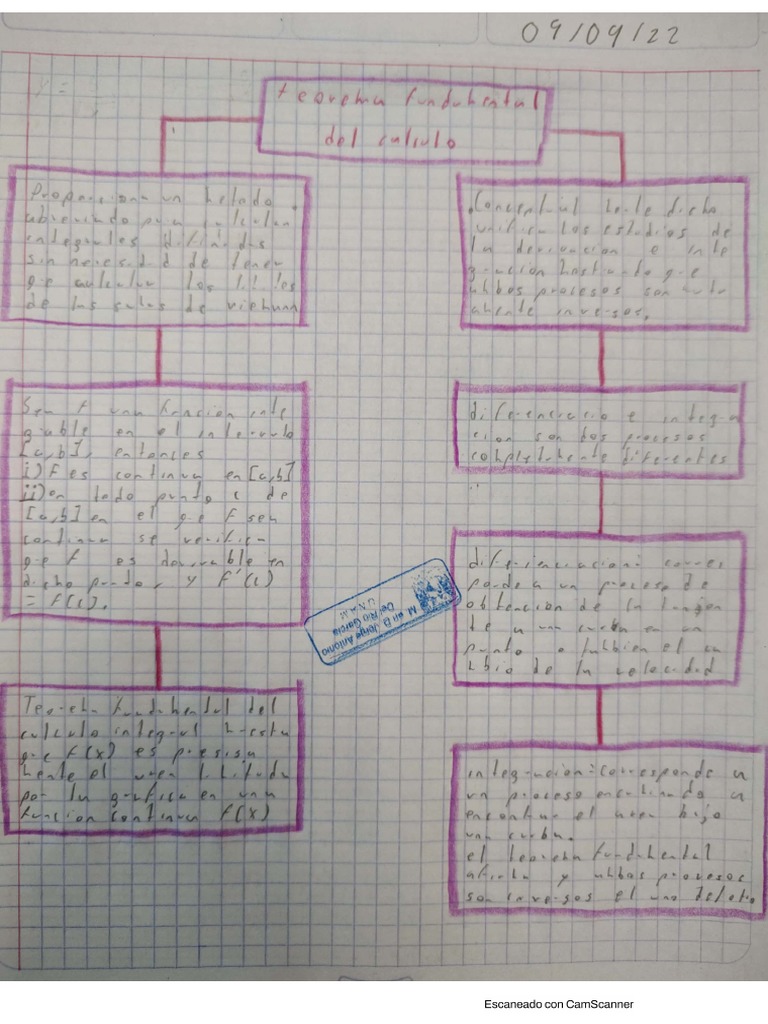 09/09/22
teorema fundamental
del calculo
Proporciona un metodo
para calcular
integrales difinidas
sin necesidad de tener
que calcular los limites
de las sumas de
Conceptual mente dicho
unifica los estudios de
la derivacion e inte
gracion mostrando que
ambos procesos son mutu
amente inversos.
Sea f una funcion inte
grable en el intervalo
[a,b], entonces
i) F es continua en [a,b]
ii) en todo punto c de
[a,b] en el que f sea
continua se verifica
que F es derivable en
dicho punto, y F'(c)
= f(c).
diferenciacio e integra
cion son dos procesos
completamente diferentes
diferienciacion: corres
ponde a un proceso de
obtencion de la
de a una curva en un
punto, o tambien el ca
mbio de la velocidad
M en D. Jorge Antonio
Del Rio Garcia
U.N.A.M
Teorema fundamental del
calculo integral muestra
que F(x) es presisa
mente el area limitada
por la grafica en una
funcion continua f(x)
integracion: corresponde a
un proceso encaminado a
encontrar el area bajo
una curva.
el teorema fundamental
afirma y ambos procesos
son inversos el uno del otro
Escaneado con CamScanner